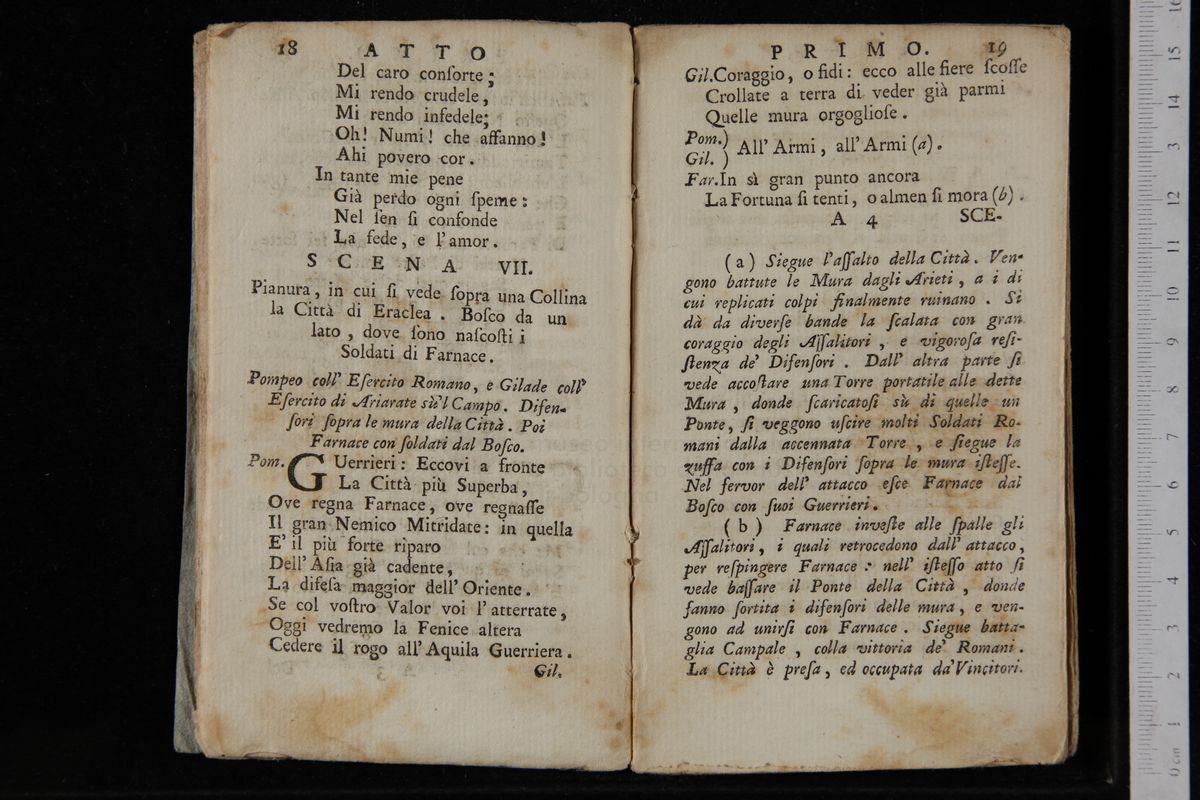 18 ATTO
Del caro conſorte;
Mi rendo crudele,
Mi rendo infedele;
Oh! Numi! che affanno!
Ahi povero cor.
In tante mie pene
Già perdo ogni ſpeme:
Nel ſen ſi confonde
La fede, e l'amor.
SCENA VII.
Pianura, in cui ſi vede ſopra una Collina
la Città di Eraclea. Boſco da un
lato, dove ſono naſcoſti i
Soldati di Farnace.
Pompeo coll' Eſercito Romano, e Gilade coll'
Eſercito di Ariarate sù'l Campo. Difen-
ſori ſopra le mura della Città. Poi
Farnace con ſoldati dal Boſco.
Pom. GUerrieri: Eccovi a fronte
La Città più Superba,
Ove regna Farnace, ove regnaſſe
Il gran Nemico Mitridate: in quella
E' il più forte riparo
Dell' Aſia già cadente,
La difeſa maggior dell' Oriente.
Se col voſtro Valor voi l'atterrate,
Oggi vedremo la Fenice altera
Cedere il rogo all' Aquila Guerriera.
Gil.
PRIMO. 19
Gil. Coraggio, o fidi: ecco alle fiere ſcoſſe
Crollate a terra di veder già parmi
Quelle mura orgoglioſe.
Pom.)
Gil. ) All' Armi, all' Armi (a).
Far. In sì gran punto ancora
La Fortuna ſi tenti, o almen ſi mora (b).
A 4 SCE-
(a) Siegue l'aſſalto della Città. Ven-
gono battute le Mura dagli Arieti, a i di
cui replicati colpi finalmente ruinano. Si
dà da diverſe bande la ſcalata con gran
coraggio degli Aſſalitori, e vigoroſa reſi-
ſtenza de' Difenſori. Dall' altra parte ſi
vede accoſtare una Torre portatile alle dette
Mura, donde ſcaricatoſi sù di quelle un
Ponte, ſi veggono uſcire molti Soldati Ro-
mani dalla accennata Torre, e ſiegue la
zuffa con i Difenſori ſopra le mura iſteſſe.
Nel fervor dell' attacco eſce Farnace dal
Boſco con ſuoi Guerrieri.
(b) Farnace inveſte alle ſpalle gli
Aſſalitori, i quali retrocedono dall' attacco,
per reſpingere Farnace: nell' iſteſſo atto ſi
vede baſſare il Ponte della Città, donde
fanno ſortita i difenſori delle mura, e ven-
gono ad unirſi con Farnace. Siegue batta-
glia Campale, colla vittoria de' Romani.
La Città è preſa, ed occupata da' Vincitori.
0 cm 1 2 3 4 5 6 7 8 9 10 11 12 13 14 15 16